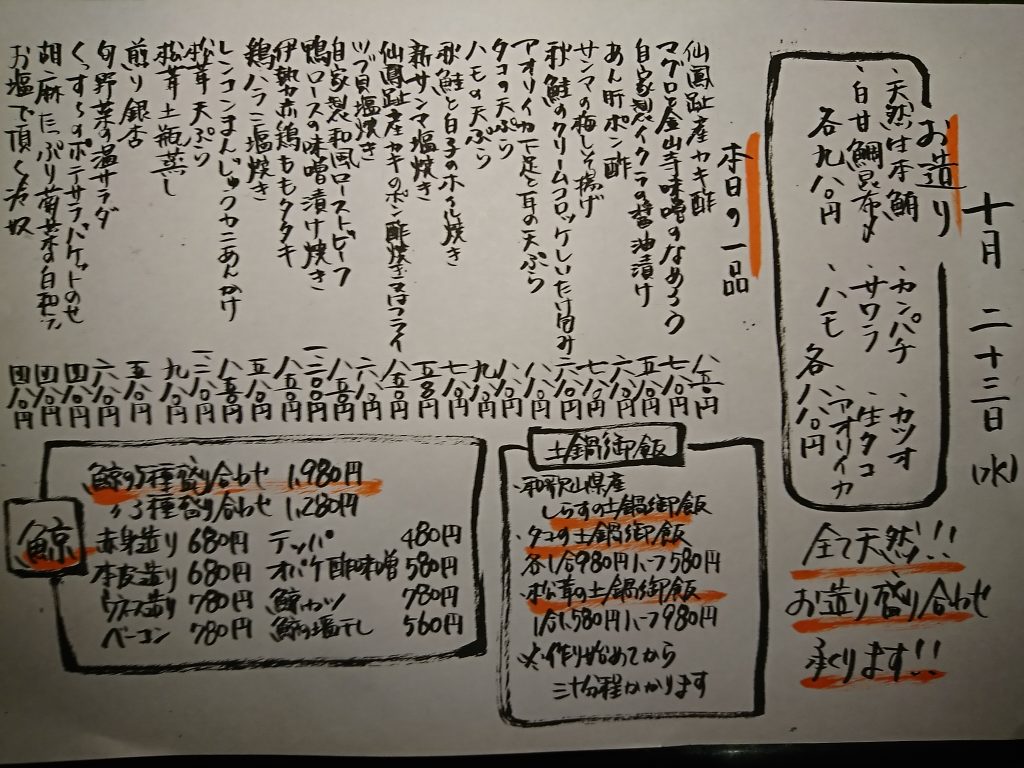 十月 二十三日(水)
お造り
・天然生本鮪 ・カンパチ ・カツオ
・白甘鯛昆布〆 ・サワラ ・生タコ
各九八〇円 ・ハモ ・アオリイカ
各八八〇円
全て天然!!
お造り盛り合わせ
承ります!!
本日の一品
仙鳳趾産カキ酢 八五〇円
マグロと金山寺味噌のなめろう 七八〇円
自家製イクラの醤油漬け 五八〇円
あん肝ポン酢 六八〇円
サンマの梅しそ揚げ 七八〇円
秋鮭のクリームコロッケしいたけ包み 六八〇円
アオリイカ下足と耳の天ぷら 八八〇円
タコの天ぷら 八八〇円
ハモの天ぷら 九八〇円
秋鮭と白子のホイル焼き 七八〇円
新サンマ塩焼き 五八〇円
仙鳳趾産カキのポン酢焼き又はフライ 八五〇円
ツブ貝塩焼き 六八〇円
自家製和風ローストビーフ 八五〇円
鴨ロースの味噌漬け焼き 一二〇〇円
伊勢赤鶏ももタタキ 八五〇円
鶏ハラミ塩焼き 五八〇円
レンコンまんじゅうカニあんかけ 八五〇円
松茸天ぷら
松茸土瓶蒸し 九八〇円
煎り銀杏 五八〇円
旬野菜の温サラダ 六八〇円
くんすらのポテサラバケットのせ 四八〇円
胡麻たっぷり菊菜白和え 四八〇円
お塩で頂く冷奴 四八〇円
土鍋御飯
・和歌山県産
しらすの土鍋御飯
・タコの土鍋御飯
各1合980円ハーフ580円
・松茸の土鍋御飯
1合1,580円ハーフ980円
※作り始めてから
三十分程かかります
鯨
鯨の5種盛り合わせ 1,980円
〃3種盛り合わせ 1,280円
赤身造り 680円 テッパ 480円
本皮造り 680円 オバケ酢味噌 580円
ウネス造り 780円 鯨カツ 780円
ベーコン 780円 鯨の塩干し 560円